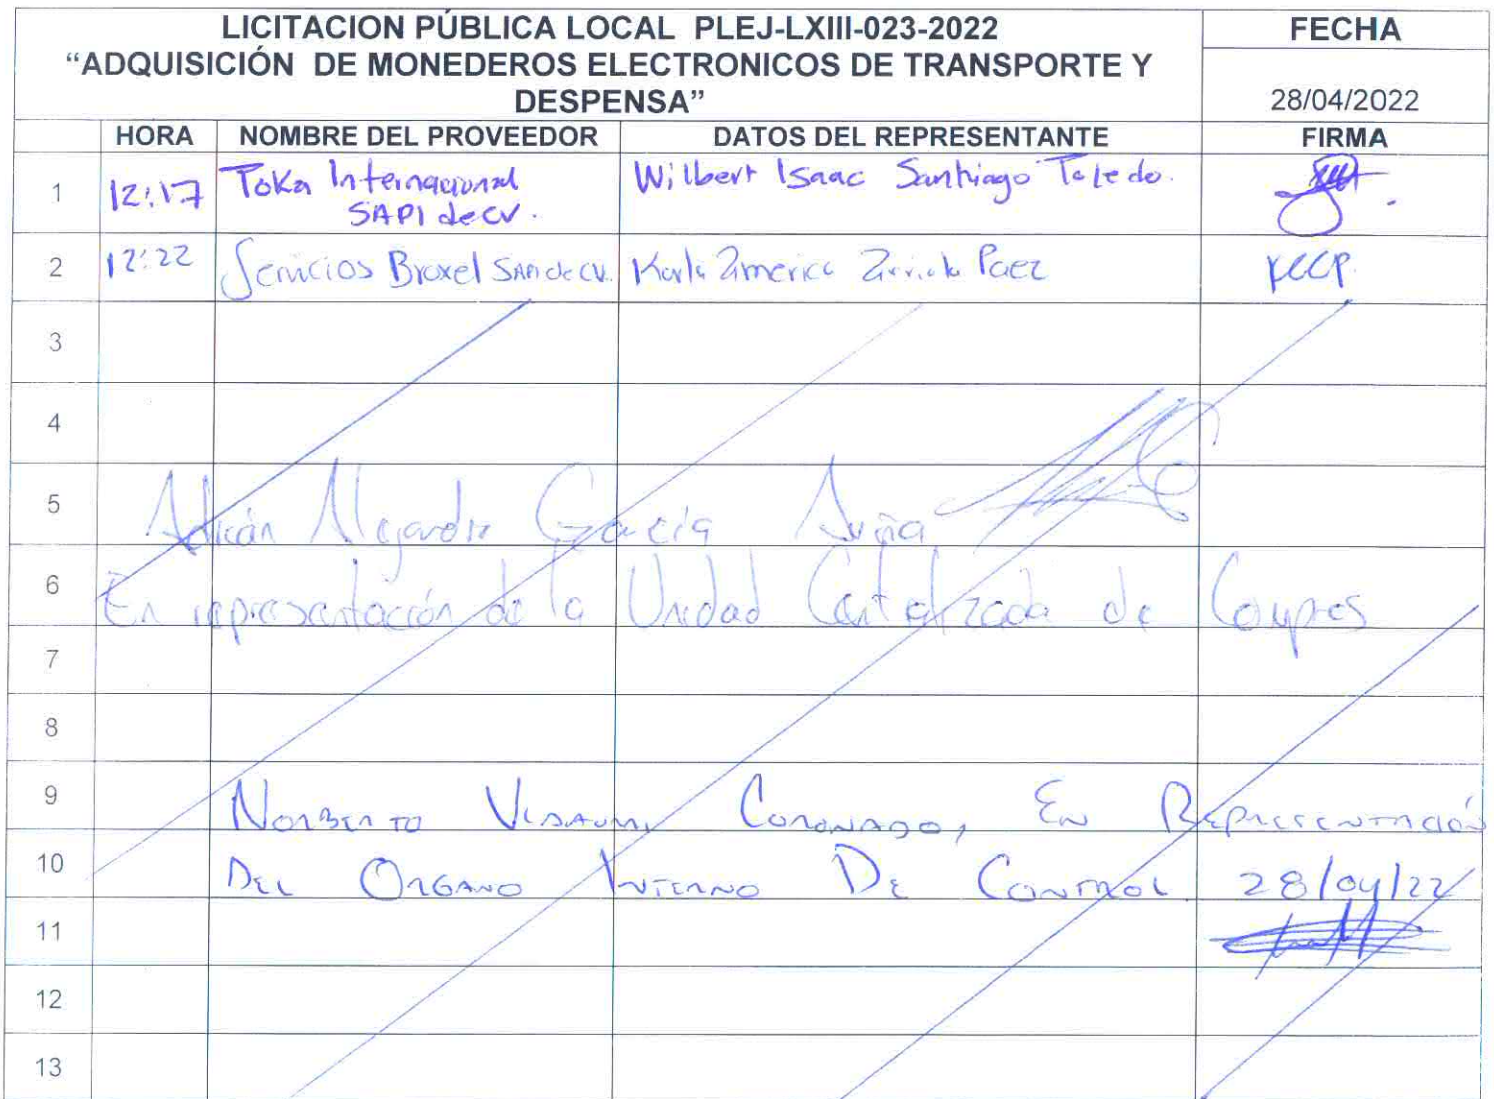 LICITACION PÚBLICA LOCAL PLEJ-LXIII-023-2022
“ADQUISICIÓN DE MONEDEROS ELECTRONICOS DE TRANSPORTE Y
DESPENSA”
FECHA
28/04/2022
HORA NOMBRE DEL PROVEEDOR DATOS DEL REPRESENTANTE FIRMA
1 12:17 Toka Internacional Wilbert Isaac Santiago Toledo.
SAPI de CV.
2 12:22 Servicios Broxel SAPI de CV. Karla Paez
3
4
5 Adrián Alejandro García
6 En representación de la Unidad Centalizada de Compras
7
8
9 Norberto Coronado, En Representación
10 Del Organo Interno De Control 28/04/22
11
12
13